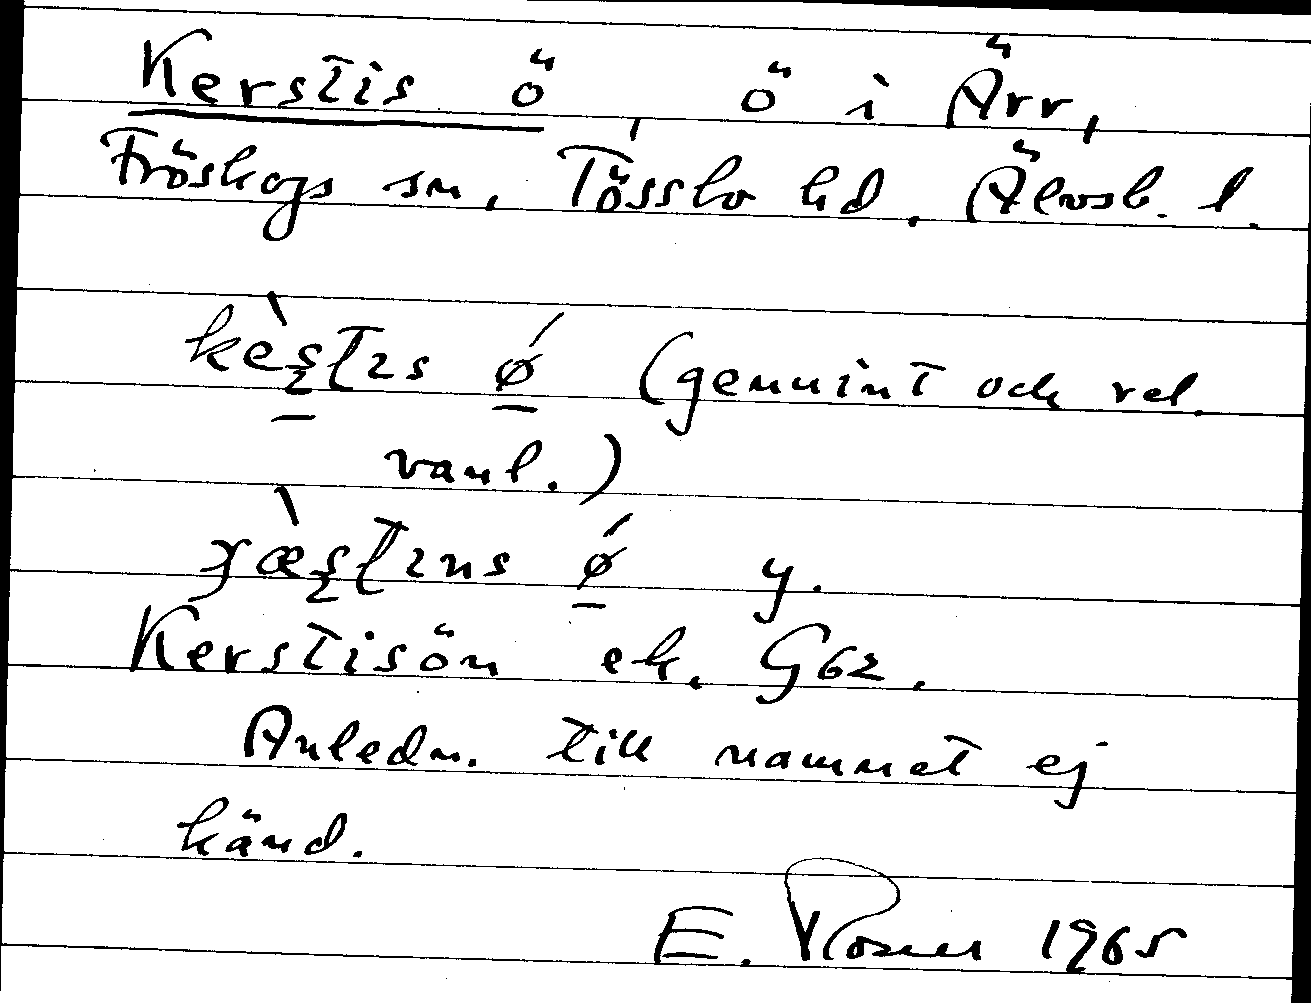 Kerstis ö, ö i Ärr,
Fröskogs sn, Tössbo hd, Älvsb. l.
kèʂʈɩs ǿ (genuint och rel.
vanl.)
ɟæ̀ʂʈɩns ǿ y.
Kerstisön ek. G62.
Anledn. till namnet ej
känd.
E. Rosen 1965